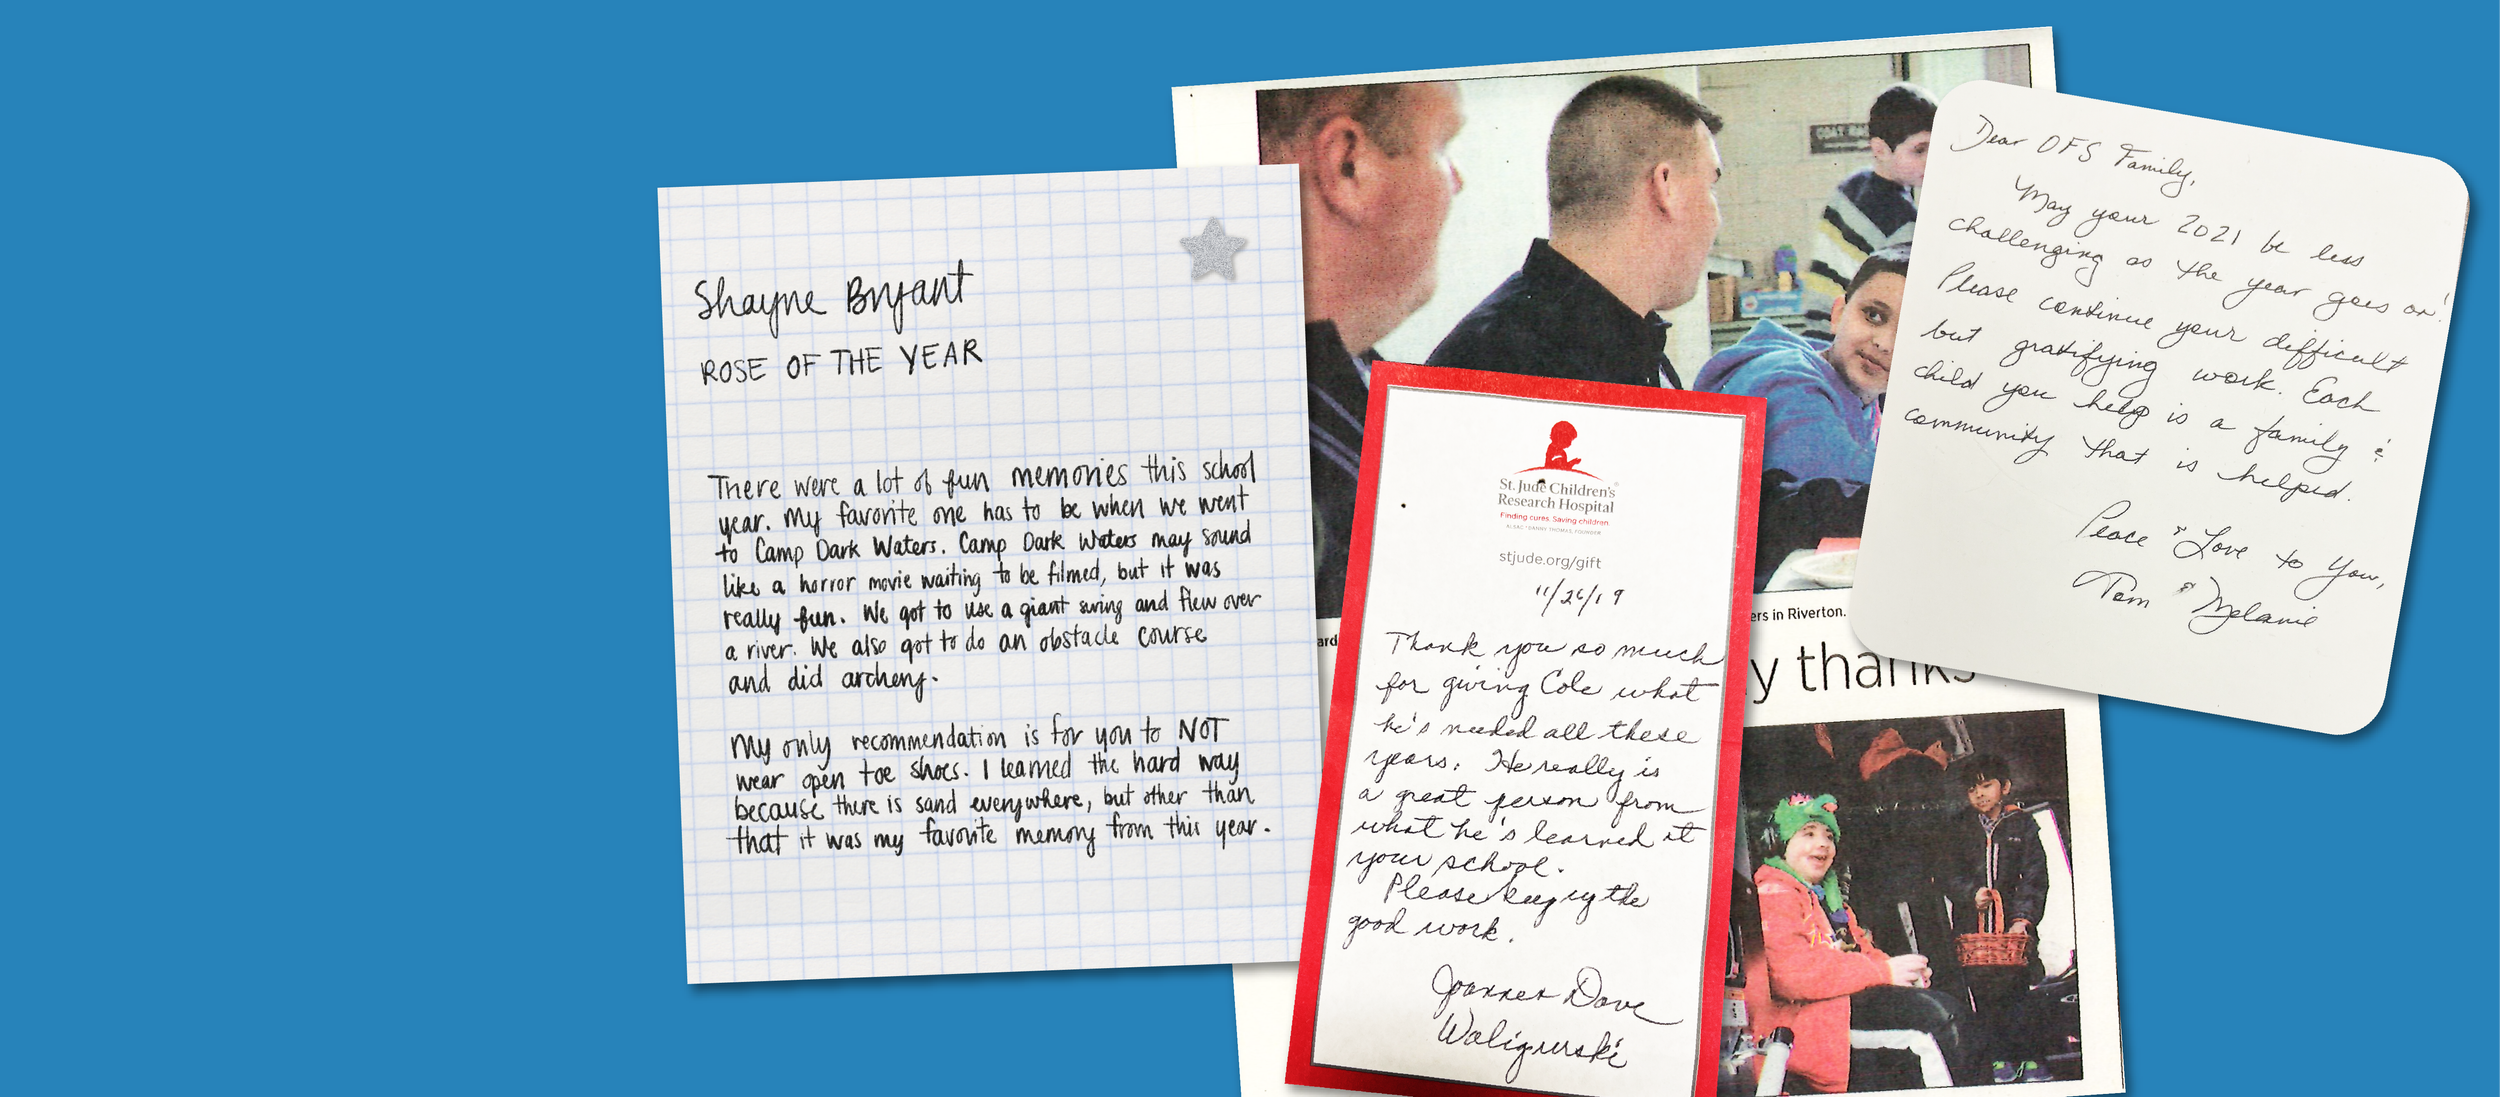 Shayne Bryant
ROSE OF THE YEAR
There were a lot of fun memories this school
year. My favorite one has to be when we went
to Camp Dark Waters. Camp Dark Waters may sound
like a horror movie waiting to be filmed, but it was
really fun. We got to use a giant swing and flew over
a river. We also got to do an obstacle course
and did archery.
My only recommendation is for you to NOT
wear open toe shoes. I learned the hard way
because there is sand everywhere, but other than
that it was my favorite memory from this year.
St. Jude Children's
Research Hospital
Finding cures. Saving children.
ALSAC • DANNY THOMAS, FOUNDER
stjude.org/gift
11/26/19
Thank you so much
for giving Cole what
he's needed all these
years. He really is
a great person from
what he's learned at
your school.
Please keep up the
good work.
Joanne & Dave
Waligurski
ard
ers in Riverton.
y thanks
Dear OFS Family,
May your 2021 be less
challenging as the year goes on!
Please continue your difficult
but gratifying work. Each
child you help is a family &
community that is helped.
Peace & Love to You,
Tom & Melanie